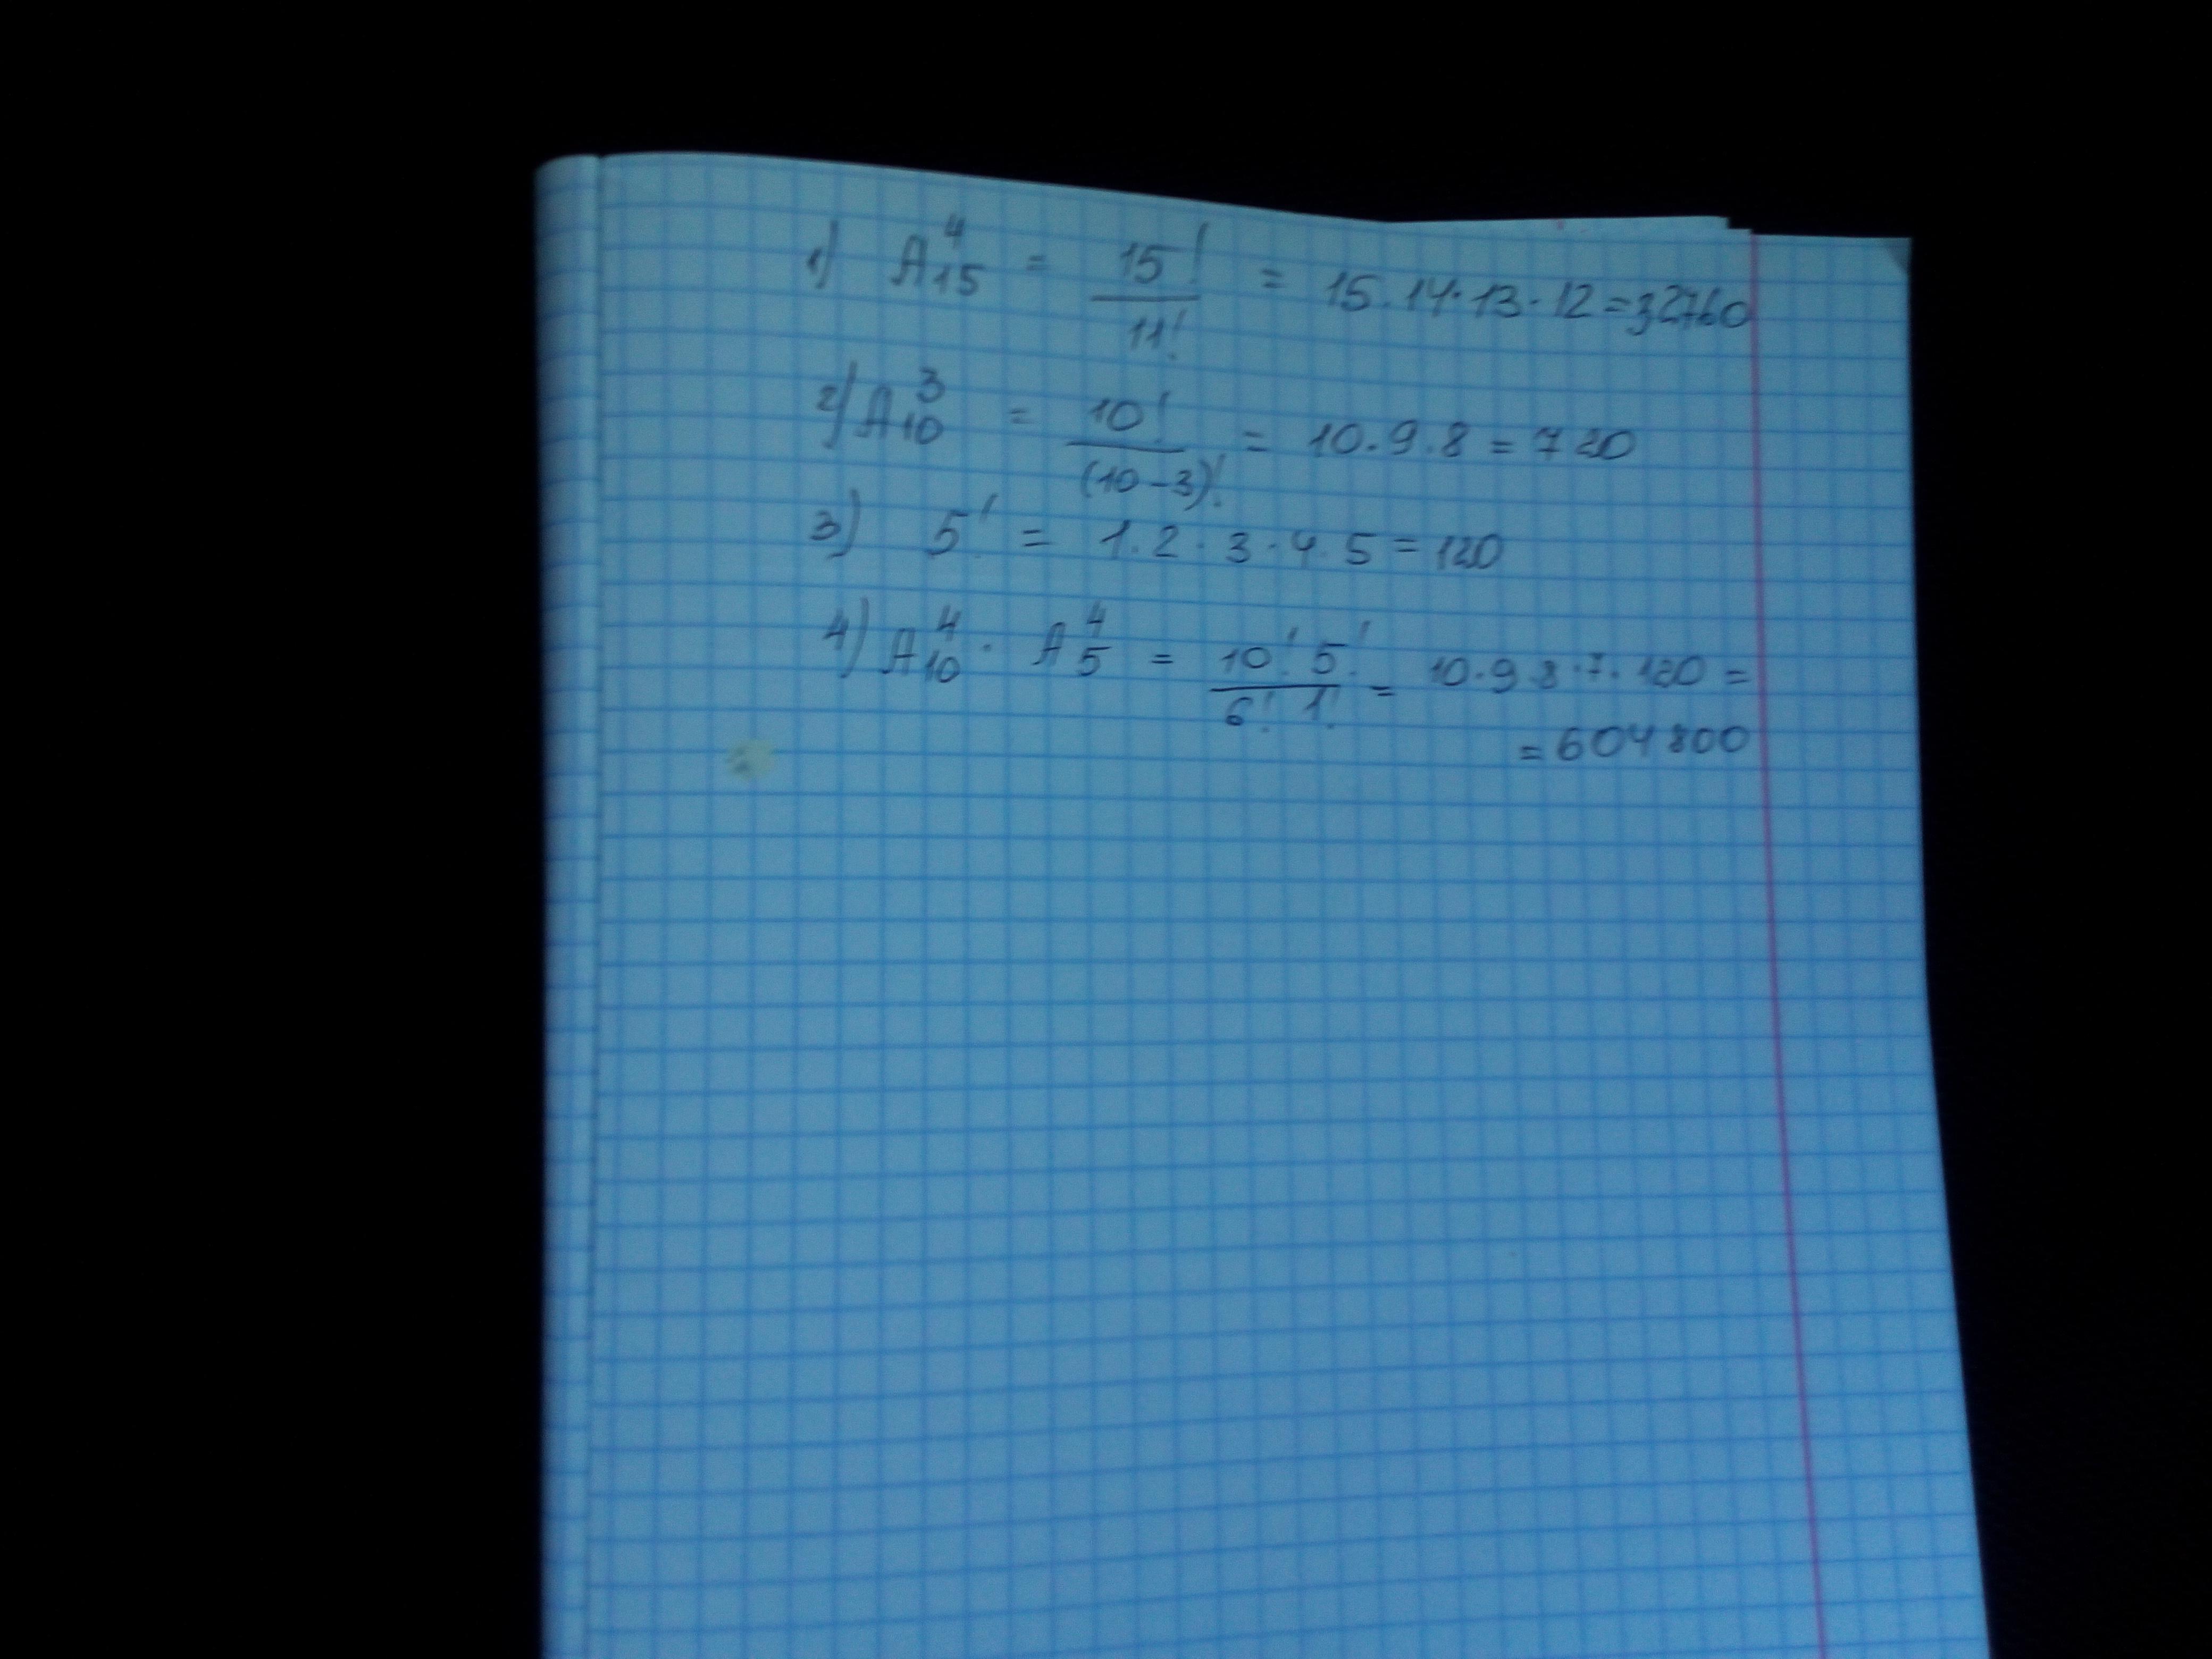 1) A₁₅⁴ = 15! / 11! = 15·14·13·12=32760
2) A₁₀³ = 10! / (10-3)! = 10·9·8 = 720
3) 5! = 1·2·3·4·5=120
4) A₁₀⁴ · A₅⁴ = 10! 5! / 6! 1! = 10·9·8·7·120 =
= 604800